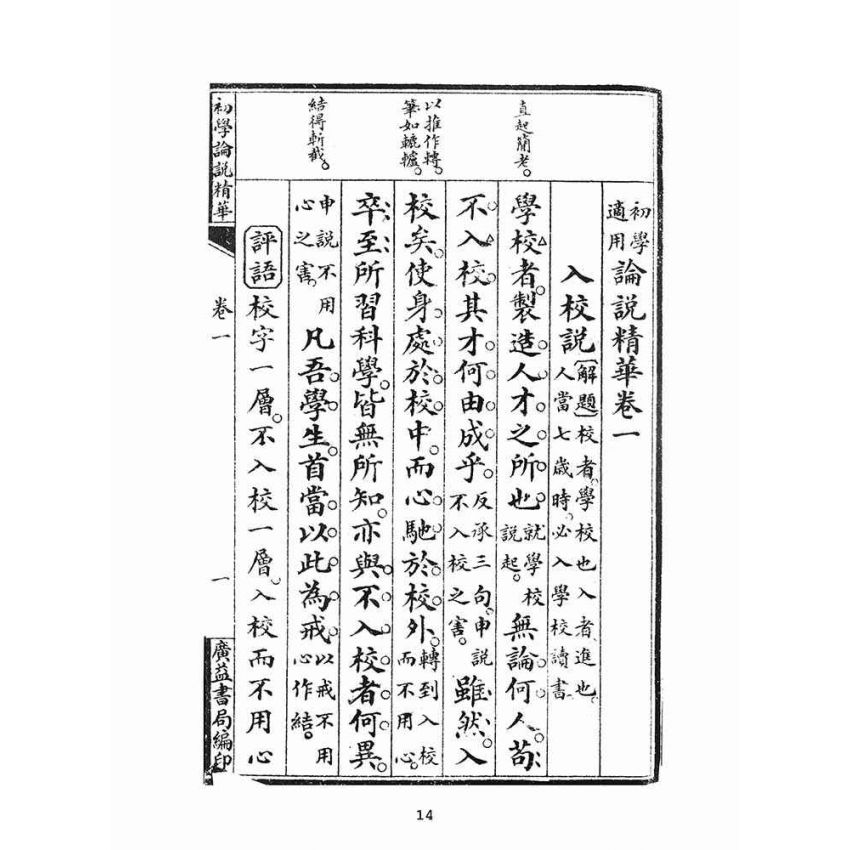 直起簡老。
以推作轉。
筆如轆轤。
結得斬截。
初學適用論說精華卷一
入校說【解題】校者。學校也入者進也。人當七歲時。必入學校讀書
學校者。製造人才之所也就學校說起。無論何人。苟
不入校。其才何由成乎。反承三句。申說不入校之害。雖然。入
校矣。使身處於校中。而心馳於校外。轉到入校而不用心。
卒至所習科學。皆無所知。亦與不入校者何異。
申說不用心之害。凡吾學生。首當以此為戒。以戒不用心作結。
評語 校字一層。不入校一層。入校而不用心
初學論說精華
卷一
一
廣益書局編印
14